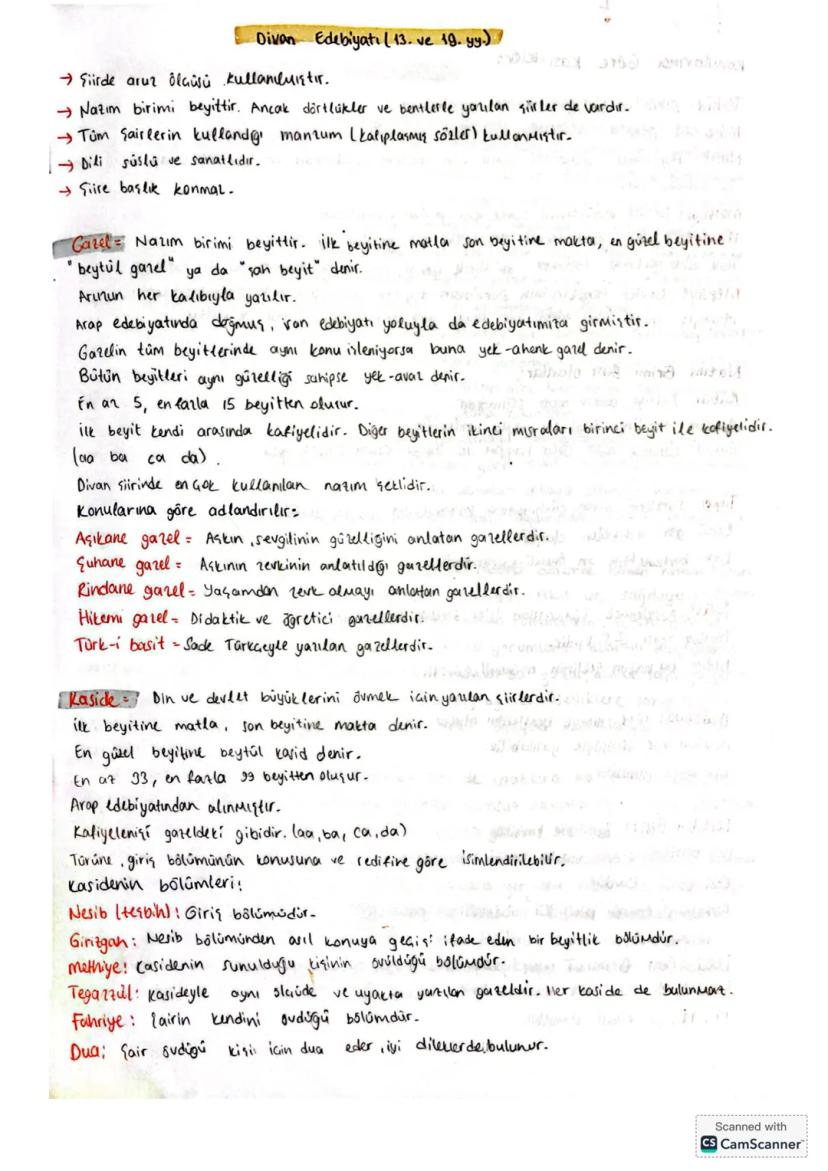 Divan Edebiyatı (13. ve 19. yy.)
→ Şiirde aruz ölçüsü kullanılmıştır.
→ Nazım birimi beyittir. Ancak dörtlükler ve bentlerle yazılan şiirler de vardır.
→ Tüm şairlerin kullandığı manzum (kalıplaşmış sözler) kullanmıştır.
→ Dili süslü ve sanatlıdır.
→ Şiire başlık konmaz.
Gazel = Nazım birimi beyittir. İlk beyitine matla son beyitine makta, en güzel beyitine
"beytül gazel" ya da "şah beyit" denir.
Aruzun her kalıbıyla yazılır.
Arap edebiyatında doğmuş, İran edebiyatı yoluyla da edebiyatımıza girmiştir.
Gazelin tüm beyitlerinde aynı konu işleniyorsa buna yek-ahenk gazel denir.
Bütün beyitleri aynı güzelliği sahipse yek-avaz denir.
En az 5, en fazla 15 beyitten oluşur.
İlk beyit kendi arasında kafiyelidir. Diğer beyitlerin ikinci mısraları birinci beyit ile kafiyelidir.
(aa ba ca da).
Divan şiirinde en çok kullanılan nazım şeklidir.
Konularına göre adlandırılır:
Aşıkane gazel = Aşkın, sevgilinin güzelliğini anlatan gazellerdir.
Şuhane gazel = Aşkının zevkinin anlatıldığı gazellerdir.
Rindane gazel = Yaşamdan zevk almayı anlatan gazellerdir.
Hikemi gazel = Didaktik ve öğretici gazellerdir.
Türk-i basit = Sade Türkçeyle yazılan gazellerdir.
Kaside = Din ve devlet büyüklerini övmek için yazılan şiirlerdir.
İlk beyitine matla, son beyitine makta denir.
En güzel beyitine beytül kasid denir.
En az 33, en fazla 99 beyitten oluşur.
Arap edebiyatından alınmıştır.
Kafiyelenişi gazeldeki gibidir. (aa, ba, ca, da)
Türüne, giriş bölümünün konusuna ve redifine göre isimlendirilebilir.
Kasidenin bölümleri:
Nesib (teşbih): Giriş bölümüdür.
Girizgah: Nesib bölümünden asıl konuya geçişi ifade eden bir beyitlik bölümdür.
Methiye: Kasidenin sunulduğu kişinin övüldüğü bölümdür.
Tegazzül: Kasideyle aynı ölçüde ve uyakta yazılan gazeldir. Her kaside de bulunmaz.
Fahriye: Şairin kendini övdüğü bölümdür.
Dua: Şair övdüğü kişi için dua eder, iyi dileklerde bulunur.
Scanned with
CS CamScanner